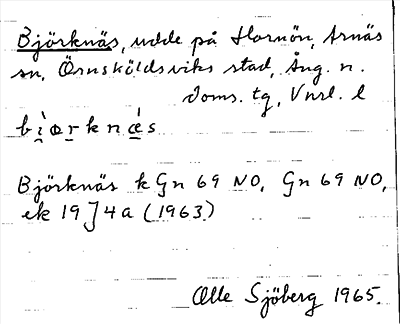 Björknäs, udde på Hornön, Arnäs
sn, Örnsköldsviks stad, Ång. n.
doms. tg, Vnrl. l
bì̠ɵr̠knä̠́s
Björknäs k Gn 69 NO, Gn 69 NO,
ek 19J4a (1963)
Olle Sjöberg 1965.